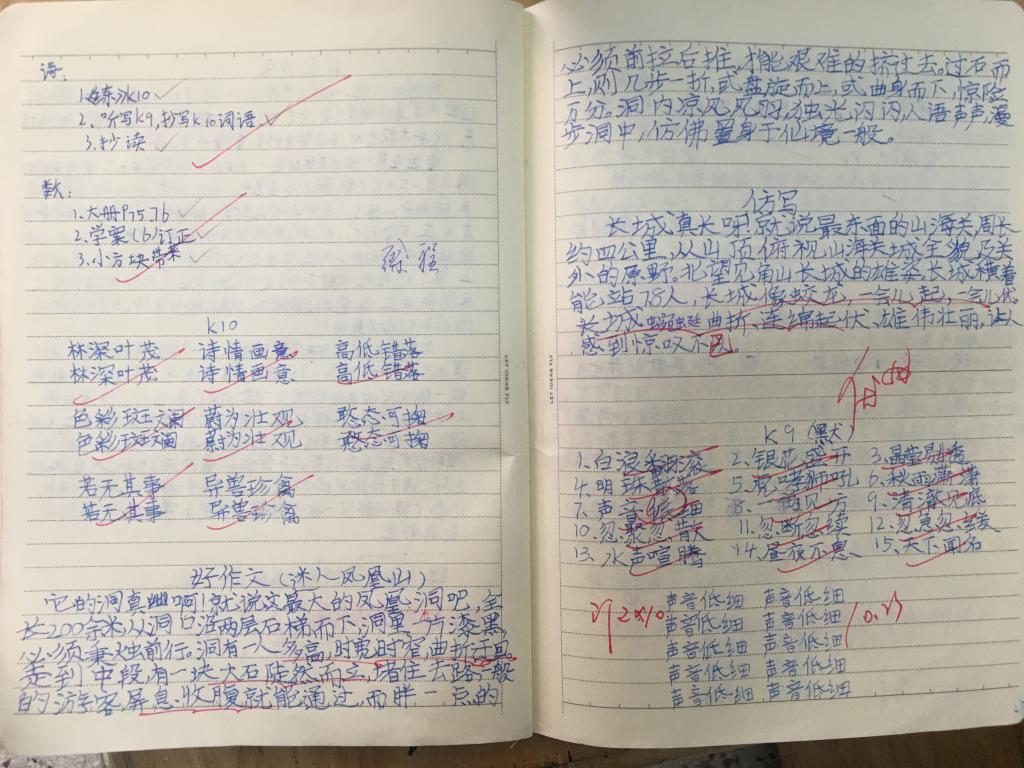 语:
1.练东水K10
2、听写K9,抄写K10词语
3.抄读
数:
1.大册P75 76
2.学案(6)订正
3.小方块带来
K10
林深叶茂 诗情画意 高低错落
林深叶茂 诗情画意 高低错落
色彩斑斓 蔚为壮观 憨态可掬
色彩斑斓 蔚为壮观 憨态可掬
若无其事 异兽珍禽
若无其事 异兽珍禽
好作文(迷人凤凰山)
它的洞真幽啊!就说这最大的凤凰洞吧,全
长200余米,从洞口沿两层石梯而下,洞里一片漆黑,
必须秉烛前行。洞有一人多高,时宽时窄,曲折迂回,
走到中段,有一块大石陡然而立,堵住去路,一般
的游客屏息、收腹就能通过,而胖一点的
必须前拉后推,才能艰难的挤过去。过石而
上,则几步一折,或盘旋而上,或曲身而下,惊险
万分。洞内凉风习习,烛光闪闪,人语声声,漫
步洞中,仿佛置身于仙境一般。
仿写
长城真长呀!就说最东面的山海关,周长
约四公里,从山顶俯视山海关城全貌及关
外的原野。北望见角山长城的雄姿,长城横着
能站78人,长城像蛟龙,一会儿起,一会儿伏。
长城蜿蜒曲折、连绵起伏、雄伟壮丽,让人
感到惊叹不已。
K9(默)
1、白浪翻滚 2、银花盛开 3、晶莹剔透
4、明珠散落 5、虎啸狮吼 6、秋雨潇潇
7、声音低细 8、一相见方 9、清澈见底
10、忽聚忽散 11、忽断忽续 12、忽急忽缓
13、水声喧腾 14、昼夜不息 15、天下闻名
声音低细 声音低细
订2×10 声音低细 声音低细
声音低细 声音低细
声音低细 声音低细
声音低细 声音低细
LET IDEAS FLY
LET IDEAS FLY